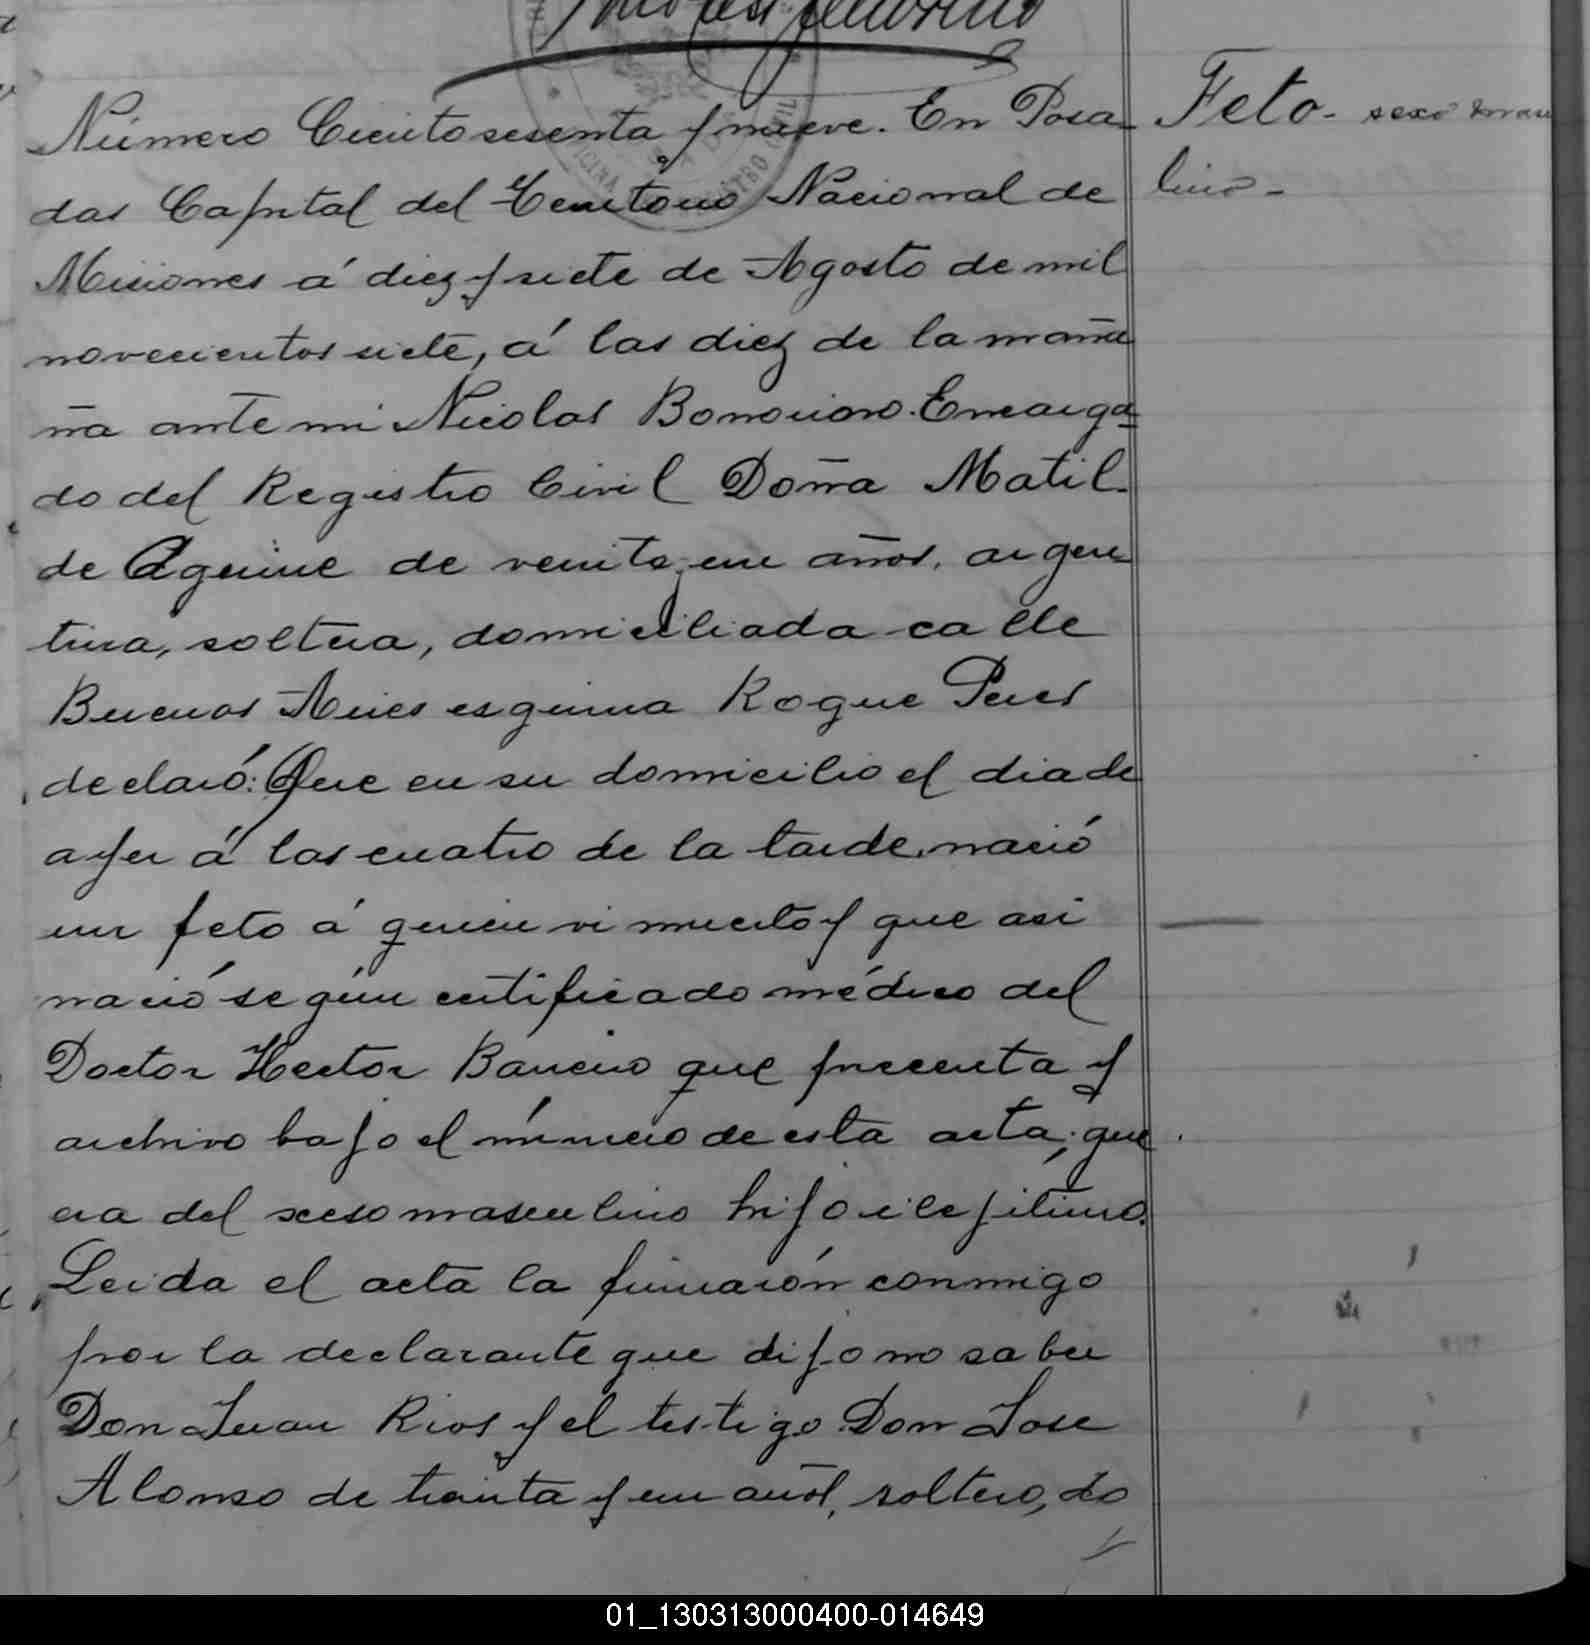 Número Ciento sesenta y nueve. En Posa-
das Capital del Territorio Nacional de
Misiones á diez y siete de Agosto de mil
novecientos siete, á las diez de la maña
ña ante mi Nicolas Bonoriono Encarga-
do del Registro Civil Doña Matil-
de Aguirre de veinte y un años, argen
tina, soltera, domiciliada calle
Buenos Aires esquina Roque Peres
declaró: Que en su domicilio el dia de
ayer á las cuatro de la tarde, nació
un feto á quien vi muerto y que asi
nació según certificado médico del
Doctor Hector Barreiro que presenta y
archivo bajo el número de esta acta; que
era del sexso masculino hijo ilejitimo.
Leida el acta la firmarón conmigo
por la declarante que dijo no saber
Don Juan Rios y el testigo Don Jose
Alonso de treinta y un años, soltero, do
Feto- sexo mascu
lino-
01_130313000400-014649